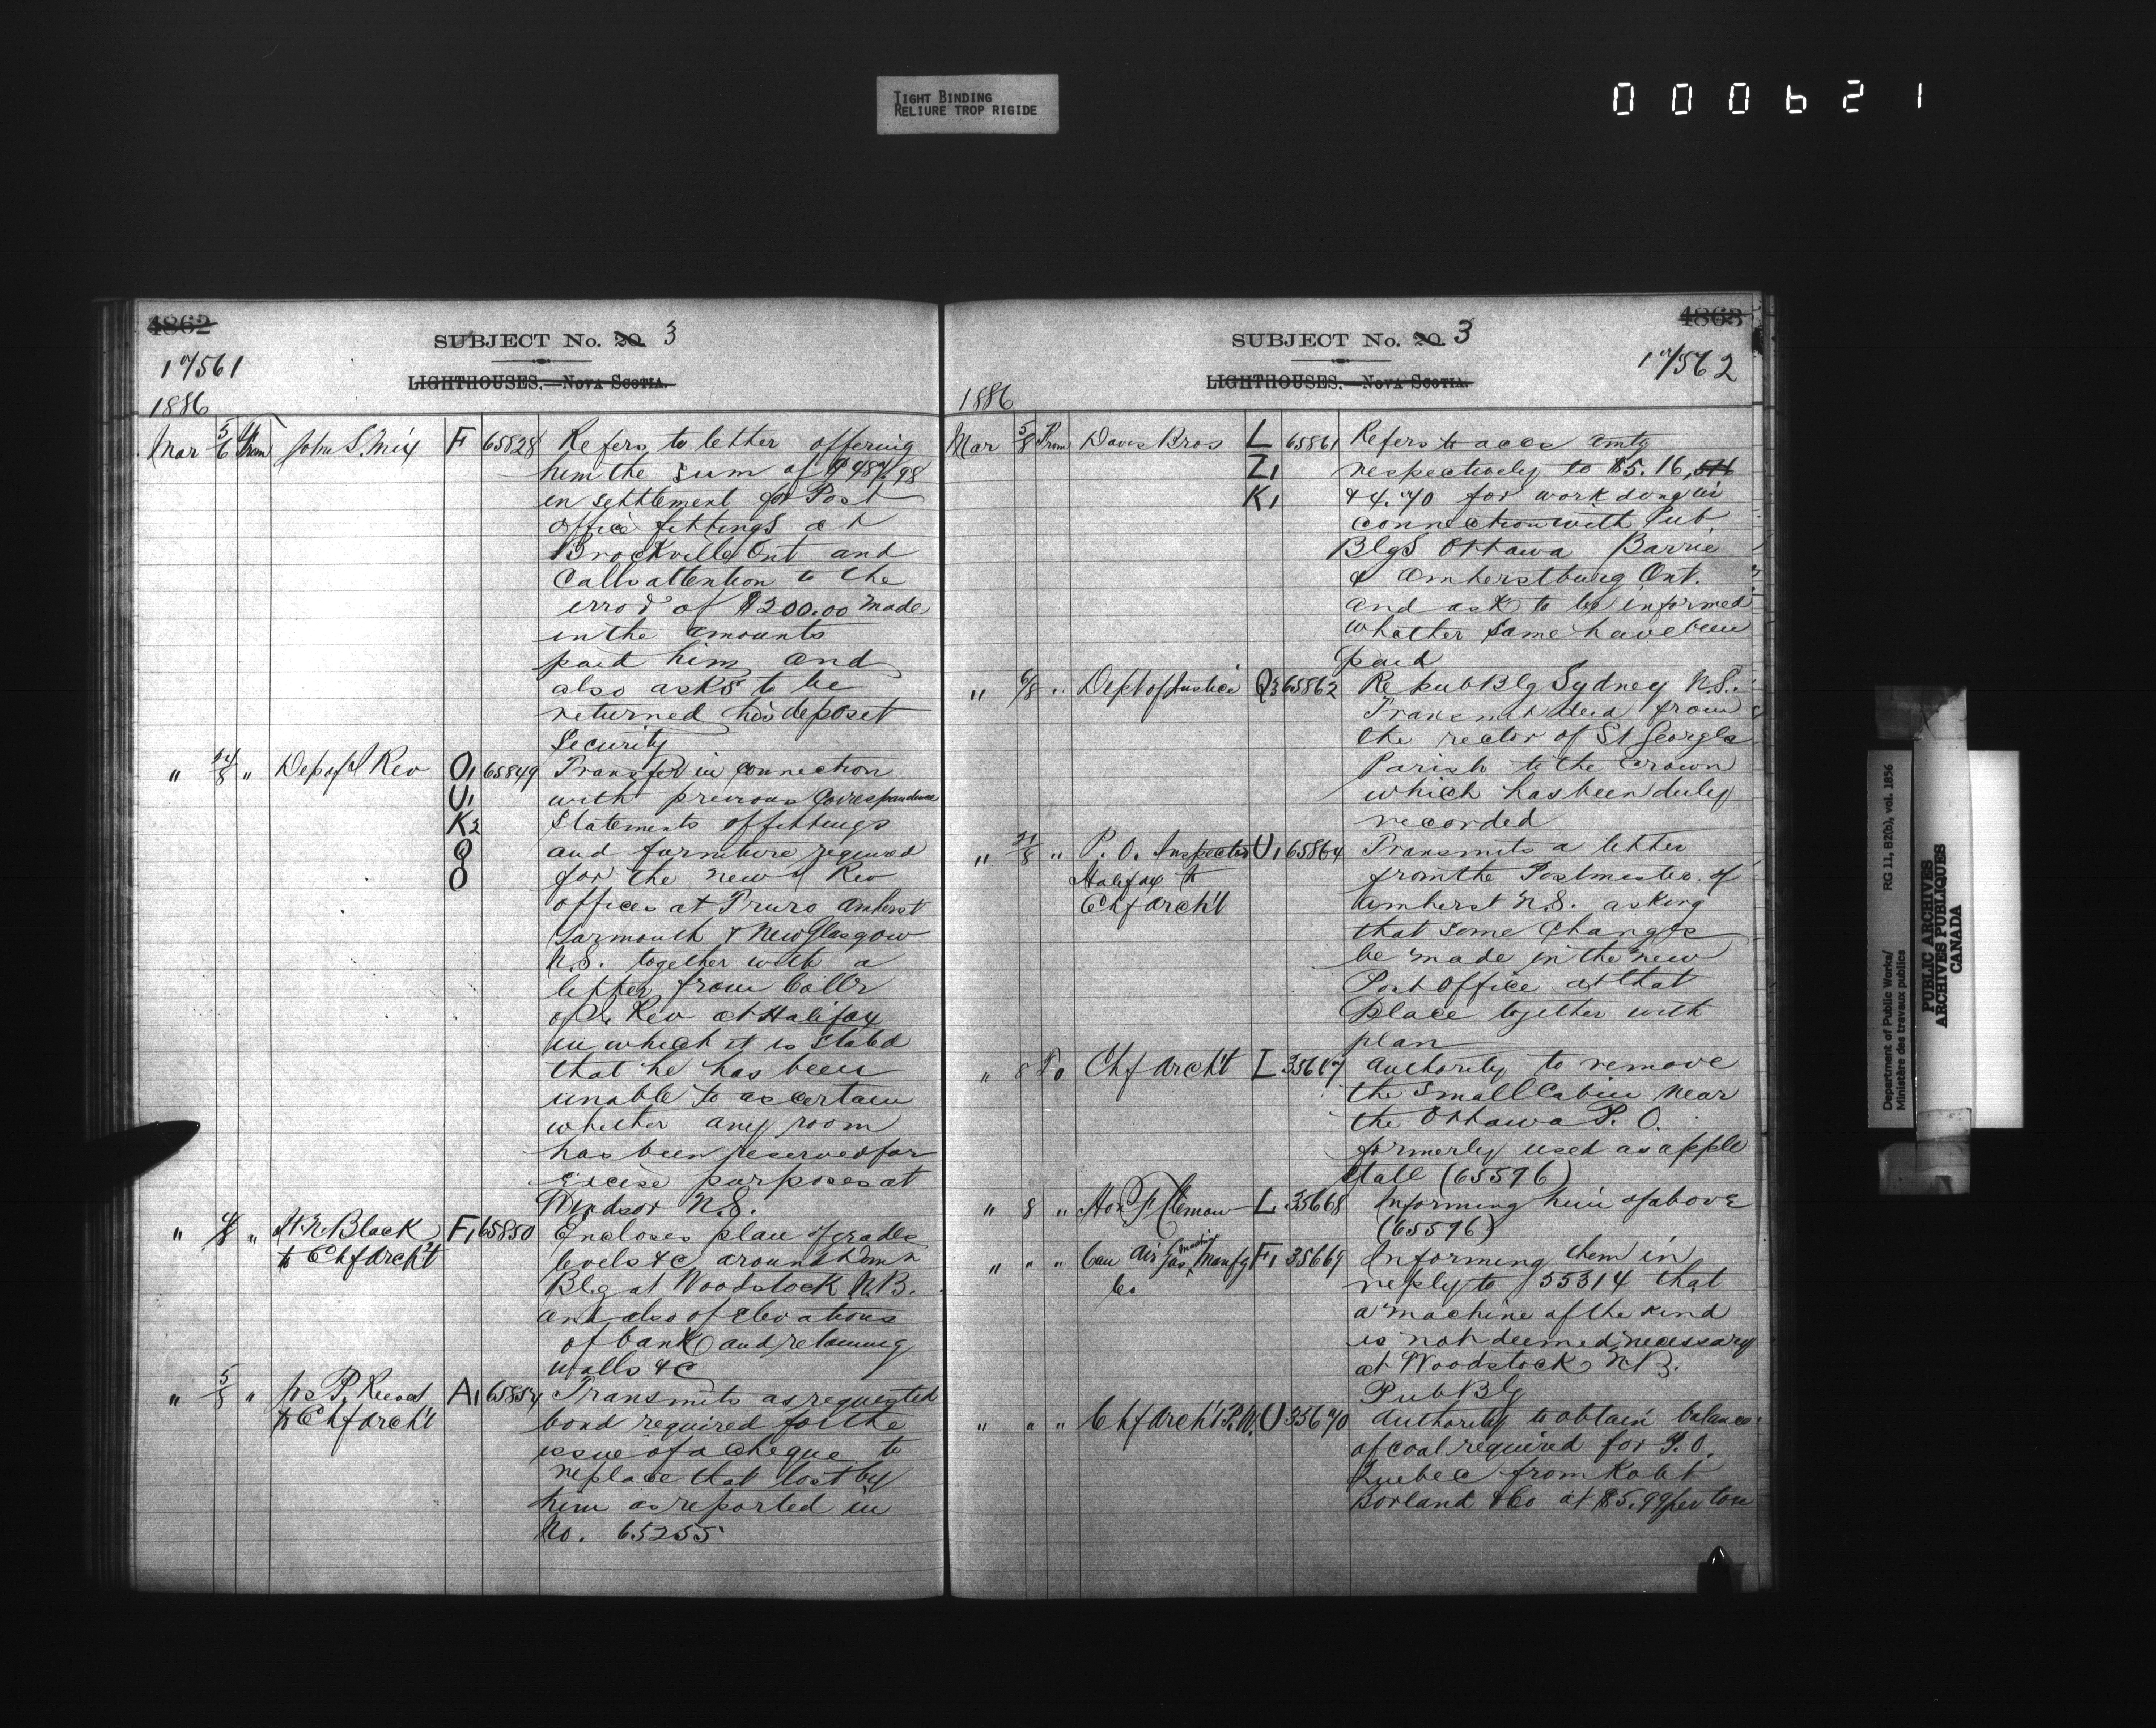 TIGHT BINDING
RELIURE TROP RIGIDE
000621
4862
SUBJECT No. 20. 3
17561
LIGHTHOUSES.—NOVA SCOTIA.
1886
Mar 5/6 From John S. Mix F 65828 Refers to letter offering
him the sum of $487.98
in settlement for Post
Office fittings at
Brockville Ont and
Calls attention to the
error of $200.00 made
in the amounts
paid him and
also asks to be
returned his deposet
Security
" " Dep of I Rev O1 65849 Transfer in connection
U1 with previous Correspondence
K2 Statements of fittings
Q and furniture required
O for the new I Rev
offices at Truro Amherst
Yarmouth & New Glasgow
N.S. together with a
letter from Collr
of I. Rev at Halifax
in which it is Stated
that he has been
unable to ascertain
whether any room
has been reserved for
Excise purposes at
Windsor N.S.
" " H N Black F1 65850 Encloses plan of grades
to Chf Archt levels &c around Dom n
Blg at Woodstock N.B.
and also of Elevations
of bank and retaining
walls &c
" 5/8 " Jos P. A1 65854 Transmits as requested
to Chf Archt bond required for the
issue of a cheque to
replace that lost by
him as reported in
No. 65255
4863
SUBJECT No. 20. 3
17562
LIGHTHOUSES.—NOVA SCOTIA.
1886
Mar 5/8 From Davis Bros L 65861 Refers to accs amtg
Z1 respectively to $5.16,
K1 & 4.70 for work done in
connection with Pub.
Blgs Ottawa Barrie
& Amherstburg Ont.
and ask to be informed
whether same have been
paid
" 6/8 " Dept of Justice Q3 65862 Re pub Blg Sydney N.S.
Transmit deed from
the rector of St Georges
Parish to the Crown
which has been duly
recorded
" " P. O. Inspector U1 65864 Transmits a letter
Halifax to from the Postmaster of
Chf Archt Amherst N.S. asking
that some changes
be made in the new
Post Office at that
place together with
plan
" 8 To Chf Archt L 35667 Authority to remove
the small Cabin near
the Ottawa P. O.
formerly used as apple
Stall (65596)
" 8 " Hon F Clemow L 35668 Informing him of above
(65596)
" " " Can Air Gas Machine Manfg F1 35669 Informing them in
Co reply to 55314 that
a machine of the kind
is not deemed necessary
at Woodstock N.B.
Pub Blg
" " " Chf Archt P.W. U 35670 Authority to obtain balance
of coal required for P.O.
Quebec from Robt
Borland & Co at $5.99 per ton
Department of Public Works/
Ministère des travaux publics
RG 11, B2(b), vol. 1856
PUBLIC ARCHIVES
ARCHIVES PUBLIQUES
CANADA